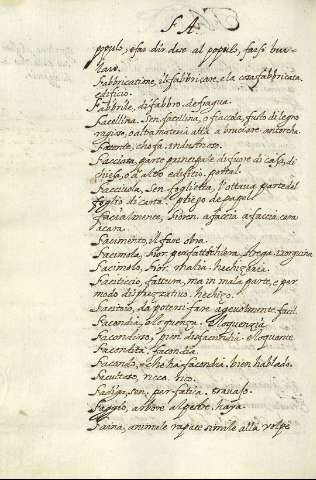 F A.
populo, o far dir duo al populo, farsi bur-
lare.
Fabbricatione, il fabbricare, e la cosa fabbricata
edificio.
Fabbrile, di fabbro. de fragua.
Facellina, Sen. facellina, o fiaccola, fusto di legno
ragioso, o altra materia atta a bruciare. antorcha
Facente, che fa. industrioso.
Facciata, parte principale di fuore di casa, di
chiesa, o d'altro edificio. portal.
Facciuola, Sen. foglietta, l'ottava parte del
foglio di carta. pliego de papel.
Facialmente, Fioren. a faccia a faccia. cara
a cara.
Facimento, il fare. obra.
Facimola, Fior. strega.
Facimolo, Fior. malia. hechizeria.
Faciticcio, fattura, ma in mala parte, e per
modo disprezzativo. hechizo.
Facitoio, da potersi fare agevolmente. facil.
Facondia, eloquenza. Eloquenzia
Facondioso, pien di facondia. eloquente.
Facondità, facondia.
Facondo, che ha facondia. bien hablado.
Facultoso, ricco. rico.
Fadiga, Sen. per fatica. travajo.
Faggio, arbore alpestre. haya.
Faina, animale rapace simile alla volpe